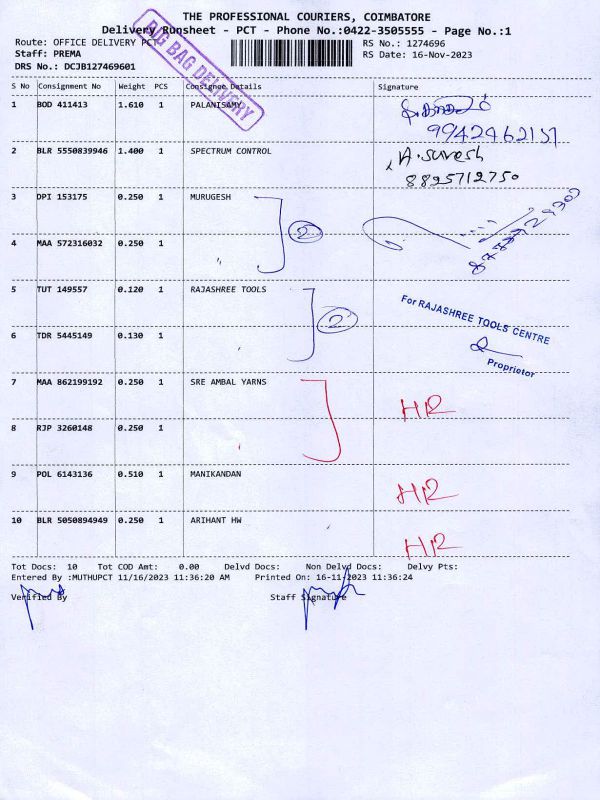 THE PROFESSIONAL COURIERS, COIMBATORE
Delivery Runsheet - PCT - Phone No.:0422-3505555 - Page No.:1
BIG BAG DELIVERY
Route: OFFICE DELIVERY PCT
RS No.: 1274696
Staff: PREMA
RS Date: 16-Nov-2023
DRS No.: DCJB127469601
S No Consignment No Weight PCS Consignee Details Signature
1 BOD 411413 1.610 1 PALANISAMY
9942462151
2 BLR 5550839946 1.400 1 SPECTRUM CONTROL A. suresh
8825712750
3 DPI 153175 0.250 1 MURUGESH
2
4 MAA 572316032 0.250 1 "
5 TUT 149557 0.120 1 RAJASHREE TOOLS
For RAJASHREE TOOLS CENTRE
2
6 TDR 5445149 0.130 1
Proprietor
7 MAA 862199192 0.250 1 SRE AMBAL YARNS
HR
8 RJP 3260148 0.250 1
9 POL 6143136 0.510 1 MANIKANDAN
HR
10 BLR 5050894949 0.250 1 ARIHANT HW
HR
Tot Docs: 10 Tot COD Amt: 0.00 Delvd Docs: Non Delvd Docs: Delvy Pts:
Entered By :MUTHUPCT 11/16/2023 11:36:20 AM Printed On: 16-11-2023 11:36:24
Verified By Staff Signature